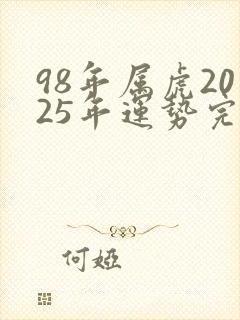 98年属虎20
25年運势完
何婭